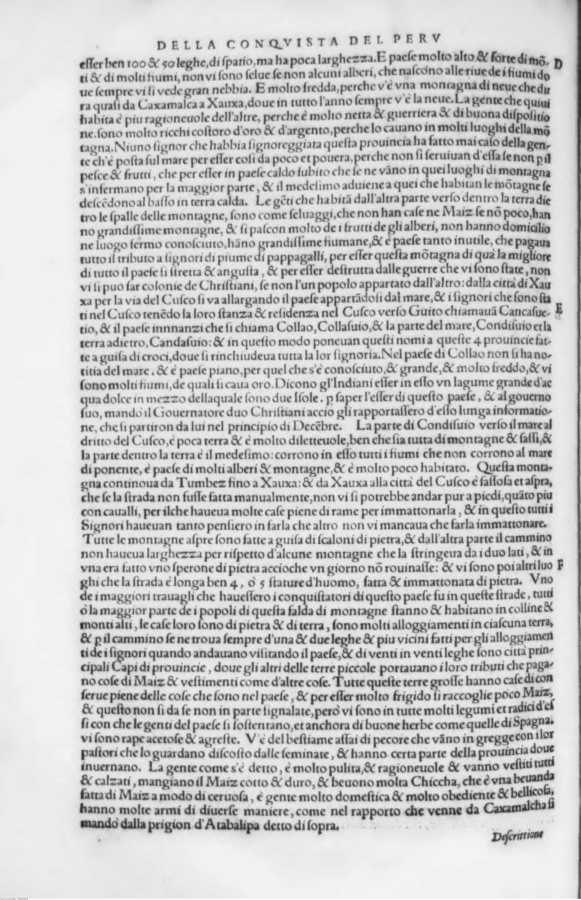 DELLA CONQVISTA DEL PERV
esser ben 100 & 50 leghe, di spatio, ma ha poca larghezza. E paese molto alto & forte di mõ- D
ti & di molti fiumi, non vi sono selue se non alcuni alberi, che nascono alle riue de i fiumi do
ue sempre vi si vede gran nebbia. E molto fredda, perche v'è vna montagna di neue che du
ra quasi da Caxamalca a Xauxa, doue in tutto l'anno sempre v'è la neue. La gente che quiui
habita è piu ragioneuole dell'altre, perche è molto netta & guerriera & di buona dispositio
ne. sono molto ricchi costoro d'oro & d'argento, perche lo cauano in molti luoghi della mõ
tagna. Niuno signor che habbia signoreggiata questa prouincia ha fatto mai caso della gen-
te ch'è posta sul mare per esser cosi da poco et pouera, perche non si seruiuan d'essa se non ꝑ il
pesce & frutti, che per esser paese caldo subito che se ne vãno in quei luoghi di montagna
s'infermano per la maggior parte, & il medesimo aduiene a quei che habitan le mõtagne se
descẽdono al basso in terra calda. Le gẽti che habitã dall'altra parte verso dentro la terra die
tro le spalle delle montagne, sono come seluaggi, che non han case ne Maiz se nõ poco, han
no grandissime montagne, & si pascon molto de i frutti de gli alberi, non hanno domicilio
ne luogo fermo conosciuto, hãno grandissime fiumane, & è paese tanto inutile, che pagaua
tutto il tributo a signori di piume di pappagalli, per esser questa mõtagna di quà la migliore
di tutto il paese si stretta & angusta, & per esser destrutta dalle guerre che vi sono state, non
vi si puo far colonie de Christiani, se non l'un popolo appartato dall'altro: dalla città di Xau
xa per la via del Cusco si va allargando il paese appartãdosi dal mare, & i signori che sono sta
ti nel Cusco tenẽdo la loro stanza & residenza nel Cusco verso Guito chiamauã Cancasue- E
tio, & il paese innnanzi che si chiama Collao, Collasuio, & la parte del mare, Condisuio et la
terra adietro, Candasuio: & in questo modo poneuan questi nomi a queste 4 prouincie fat-
te a guisa di croci, doue si rinchiudeua tutta la lor signoria. Nel paese di Collao non si ha no-
titia del mare, & è paese piano, per quel che s'è conosciuto, & grande, & molto freddo, & vi
sono molti fiumi, de quali si caua oro. Dicono gl'Indiani esser in esso vn lagume grande d'ac
qua dolce in mezzo della quale sono due Isole. ꝑ saper l'esser di questo paese, & al gouerno
suo, mandò il Gouernatore duo Christiani accio gli rapportassero d'esso lunga informatio-
ne, che si partiron da lui nel principio di Decẽbre. La parte di Condisuio verso il mare al
dritto del Cusco, è poca terra & è molto diletteuole, ben che sia tutta di montagne & sassi, &
la parte dentro la terra è il medesimo: corrono in esso tutti i fiumi che non corrono al mare
di ponente, è paese di molti alberi & montagne, & è molto poco habitato. Questa monta-
gna continoua da Tumbez fino a Xauxa: & da Xauxa alla città del Cusco è sassosa et aspra,
che se la strada non fusse fatta manualmente, non vi si potrebbe andar pur a piedi, quãto piu
con caualli, per ilche haueua molte case piene di rame per immattonarla, & in questo tutti i
Signori haueuan tanto pensiero in farla che altro non vi mancaua che farla immattonare.
Tutte le montagne aspre sono fatte a guisa di scaloni di pietra, & dall'altra parte il cammino
non haueua larghezza per rispetto d'alcune montagne che la stringeua da i duo lati, & in
vna era fatto vno sperone di pietra accioche vn giorno nõ rouinasse: & vi sono poi altri luo F
ghi che la strada è longa ben 4, ò 5 stature d'huomo, fatta & immattonata di pietra. Vno
de i maggiori trauagli che hauessero i conquistatori di questo paese fu in queste strade, tutti
ò la maggior parte de i popoli di questa falda di montagne stanno & habitano in colline &
monti alti, le case loro sono di pietra & di terra, sono molti alloggiamenti in ciascuna terra,
& ꝑ il cammino se ne troua sempre d'una & due leghe & piu vicini fatti per gli alloggiamen
ti de i signori quando andauano visitando il paese, & di venti in venti leghe sono città prin-
cipali Capi di prouincie, doue gli altri delle terre piccole portauano i loro tributi che paga-
no cose di Maiz & vestimenti come d'altre cose. Tutte queste terre grosse hanno case di con
serue piene delle cose che sono nel paese, & per esser molto frigido si raccoglie poco Maiz,
& questo non si da se non in parte signalate, però vi sono in tutte molti legumi et radici d'es
si con che le genti del paese si sostentano, et anchora di buone herbe come quelle di Spagna.
vi sono rape acetose & agreste. V'è del bestiame assai di pecore che vãno in gregge con i lor
pastori che lo guardano discosto dalle seminate, & hanno certa parte della prouincia doue
inuernano. La gente come s'è detto, è molto pulita, & ragioneuole & vanno vestiti tutti
& calzati, mangiano il Maiz cotto & duro, & beuono molta Chiccha, che è vna beuanda
fatta di Maiz a modo di ceruosa, è gente molto domestica & molto obediente & bellicosa,
hanno molte armi di diuerse maniere, come nel rapporto che venne da Caxamalcha si
mandò dalla prigion d'Atabalipa detto di sopra.
Descrittione